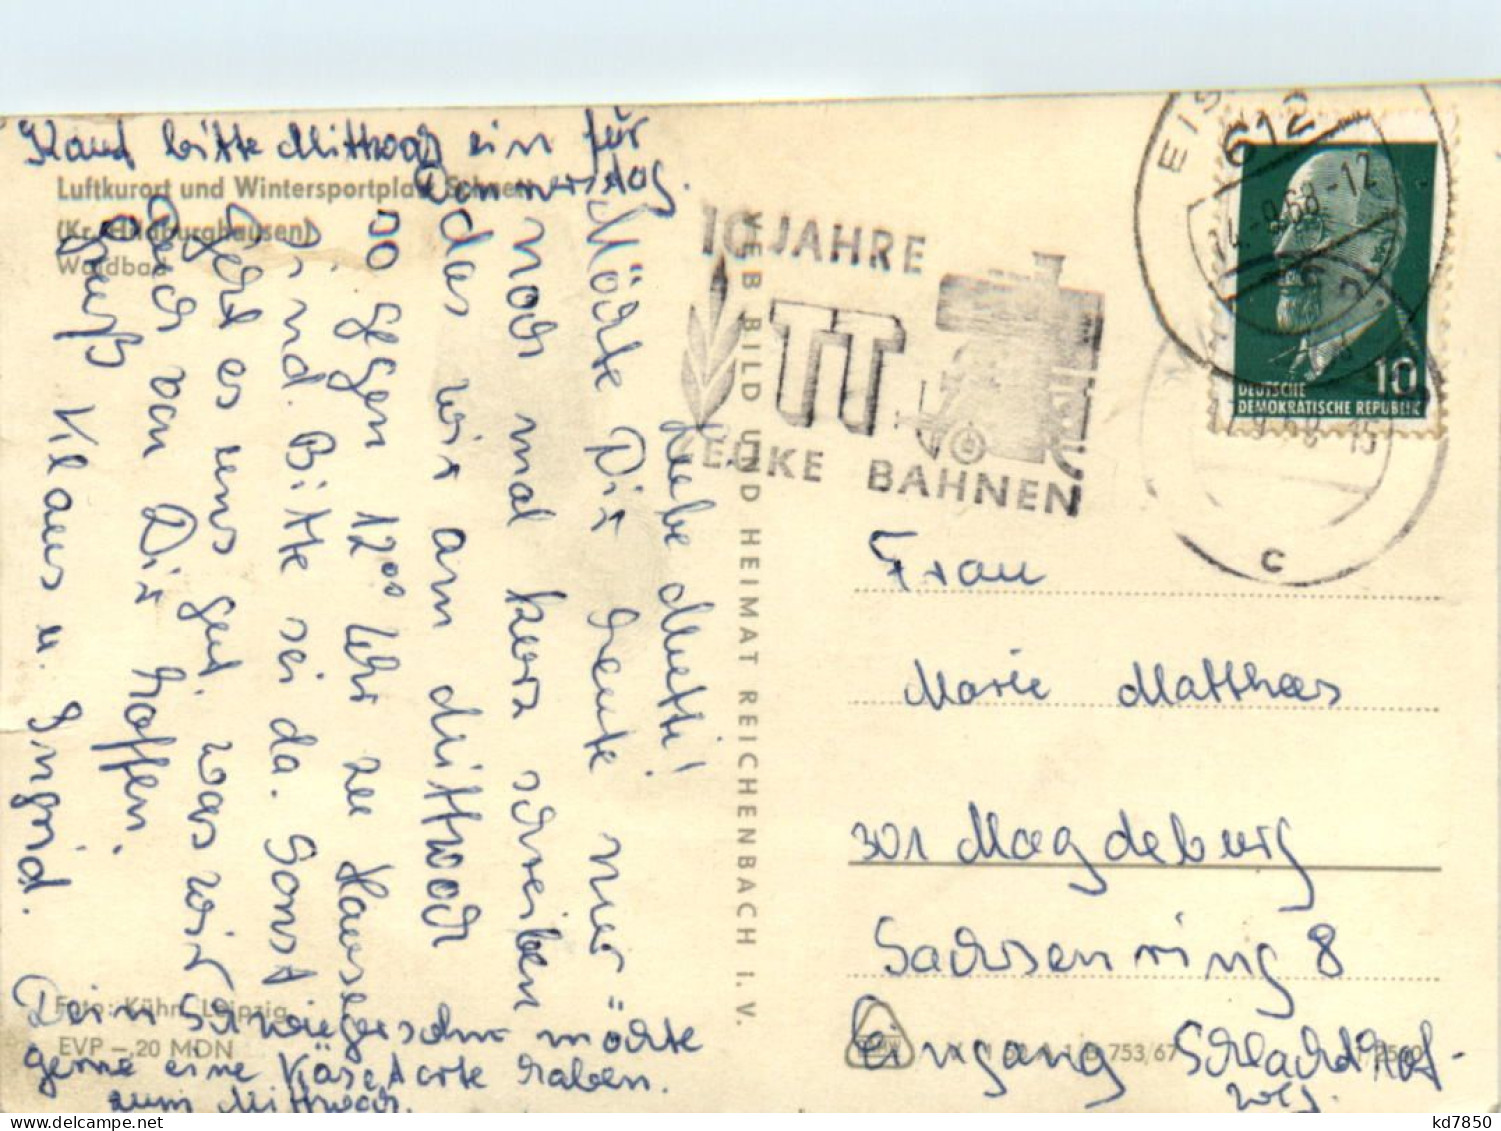 Kauf bitte Mittwoch ein für
Donnerstag.
Luftkurort und Wintersportplatz Schnett
(Kr. Hildburghausen)
Waldbad
Liebe Mutti!
Möchte Dir heute nur
noch mal kurz schreiben
das wir am Mittwoch
so gegen 12⁰⁰ Uhr zu Hause
sind. Bitte sei da. Sonst
geht es uns gut, was wir
auch von Dir hoffen.
Gruß Klaus u. Ingrid.
Dein Schwiegersohn möchte
gerne eine Käsetorte haben.
zum Mittwoch.
Foto: Kühn, Leipzig
EVP –,20 MDN
VEB BILD UND HEIMAT REICHENBACH I. V.
10 JAHRE
TT
ZEUKE BAHNEN
612
14.-9.68-12
17.9.68-15
c
10
DEUTSCHE
DEMOKRATISCHE REPUBLIK
Frau
Marie Matthees
301 Magdeburg
Sachsenring 8
Eingang Schlachthof-
weg.
753/67
kd7850